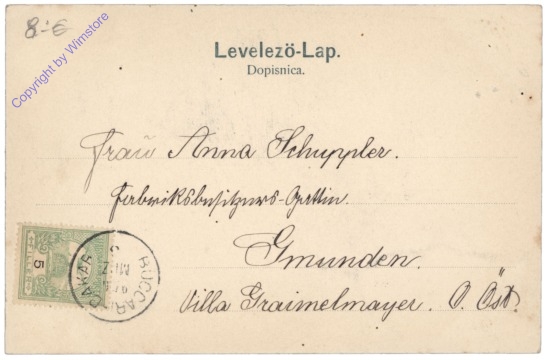 8.-€
Copyright by Wimstore
Levelező-Lap.
Dopisnica.
Frau Anna Schuppler.
Fabriksbesitzers-Gattin.
Gmunden.
Villa Graimelmayer. O. Öst.
5
BUCCARI
BAKAR